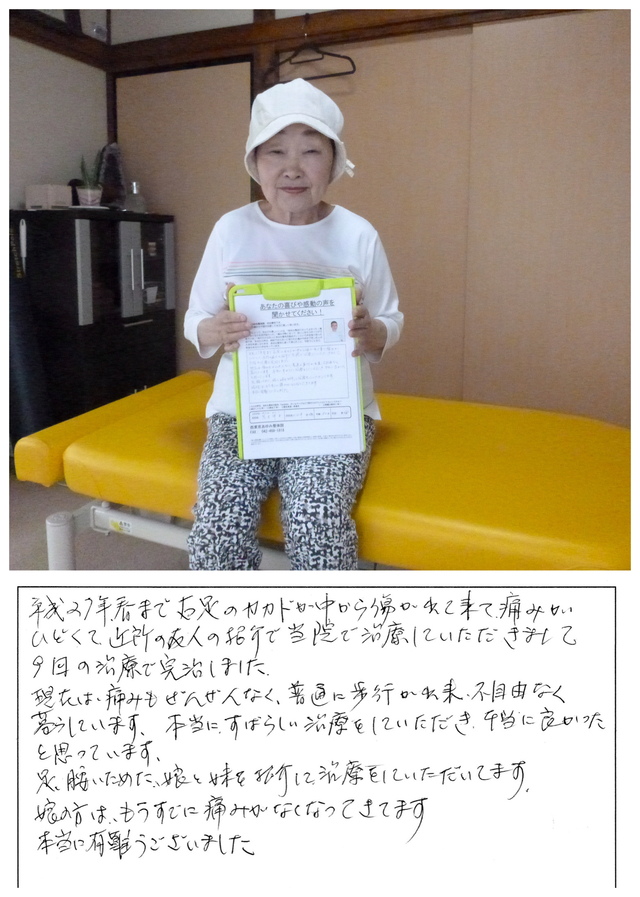 あなたの喜びや感動の声を
聞かせてください！
平成27年春まで右足のカカトが中から傷がれて来て、痛みが
ひどくて近所の友人の紹介で当院で治療していただきまして
9日の治療で完治しました。
現在は、痛みもぜんぜんなく、普通に歩行が出来、不自由なく
暮らしています。本当に、すばらしい治療をしていただき、本当に良かった
と思っています。
足、腰いためた、娘と妹を紹介して、治療をしていただいてます。
娘の方は、もうすでに痛みがなくなってきてます
本当に有難うございました